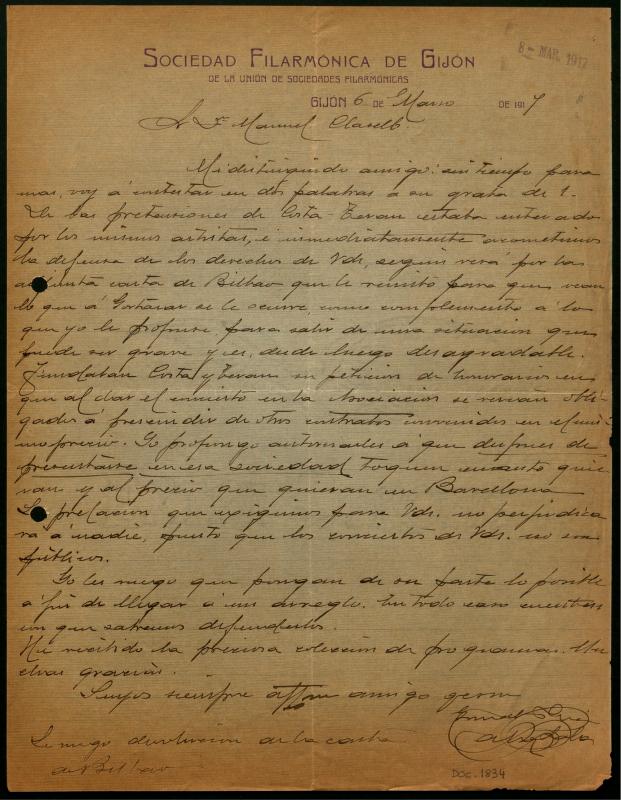 8 - MAR. 1917
SOCIEDAD FILARMÓNICA DE GIJÓN
DE LA UNIÓN DE SOCIEDADES FILARMÓNICAS
GIJÓN 6 DE Marzo DE 1917
Sr Dn Manuel Clausells.
Mi distinguido amigo: sin tiempo para
mas, voy á contestar en dos palabras a su grata de 1.
De las pretensiones de Costa-Teran estaba enterado
por los mismos artistas, é inmediatamente acometimos
la defensa de los derechos de Vds, segun verá por la
adjunta carta de Bilbao que le remito para que vean
lo que á Gortazar se le ocurre, como complemento á lo
que yo le propuse para salir de una situacion que
puede ser grave y es, desde luego desagradable.
Fundaban Costa y Teran su peticion de honorarios en
que al dar el concierto en la Asociacion se verian obli-
gados á prescindir de otros contratos convenidos en el mis-
mo precio. Yo propongo autorizarles á que despues de
presentarse en esa sociedad toquen cuanto quie-
ran y al precio que quieran en Barcelona
La prelacion que exigimos para Vds. no perjudica
rá á nadie, puesto que los conciertos de Vds. no son
públicos.
Yo les ruego que pongan de su parte lo posible
a fin de llegar á un arreglo. En todo caso cuenten
con que sabremos defenderlos.
He recibido la preciosa coleccion de programas. Mu
chas gracias.
Suyo siempre affmo amigo q e s m
Le ruego devolucion de la carta
de Bilbao
DOC. 1834